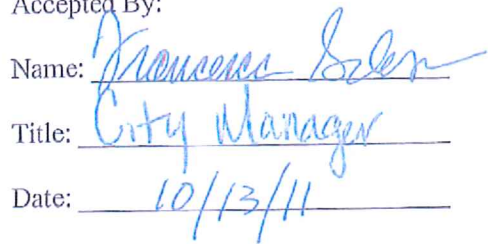 Accepted By:
Name: Francesca
Title: City Manager
Date: 10/13/11